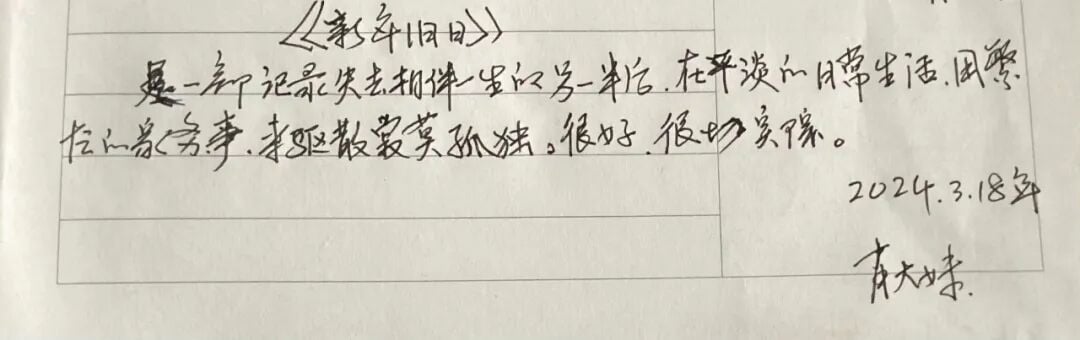 《新年旧日》
是一部记录失去相伴一生的另一半后,在平淡的日常生活,用繁
忙的家务事,来驱散寂莫孤独。很好,很切实际。
2024.3.18年
肖大妹